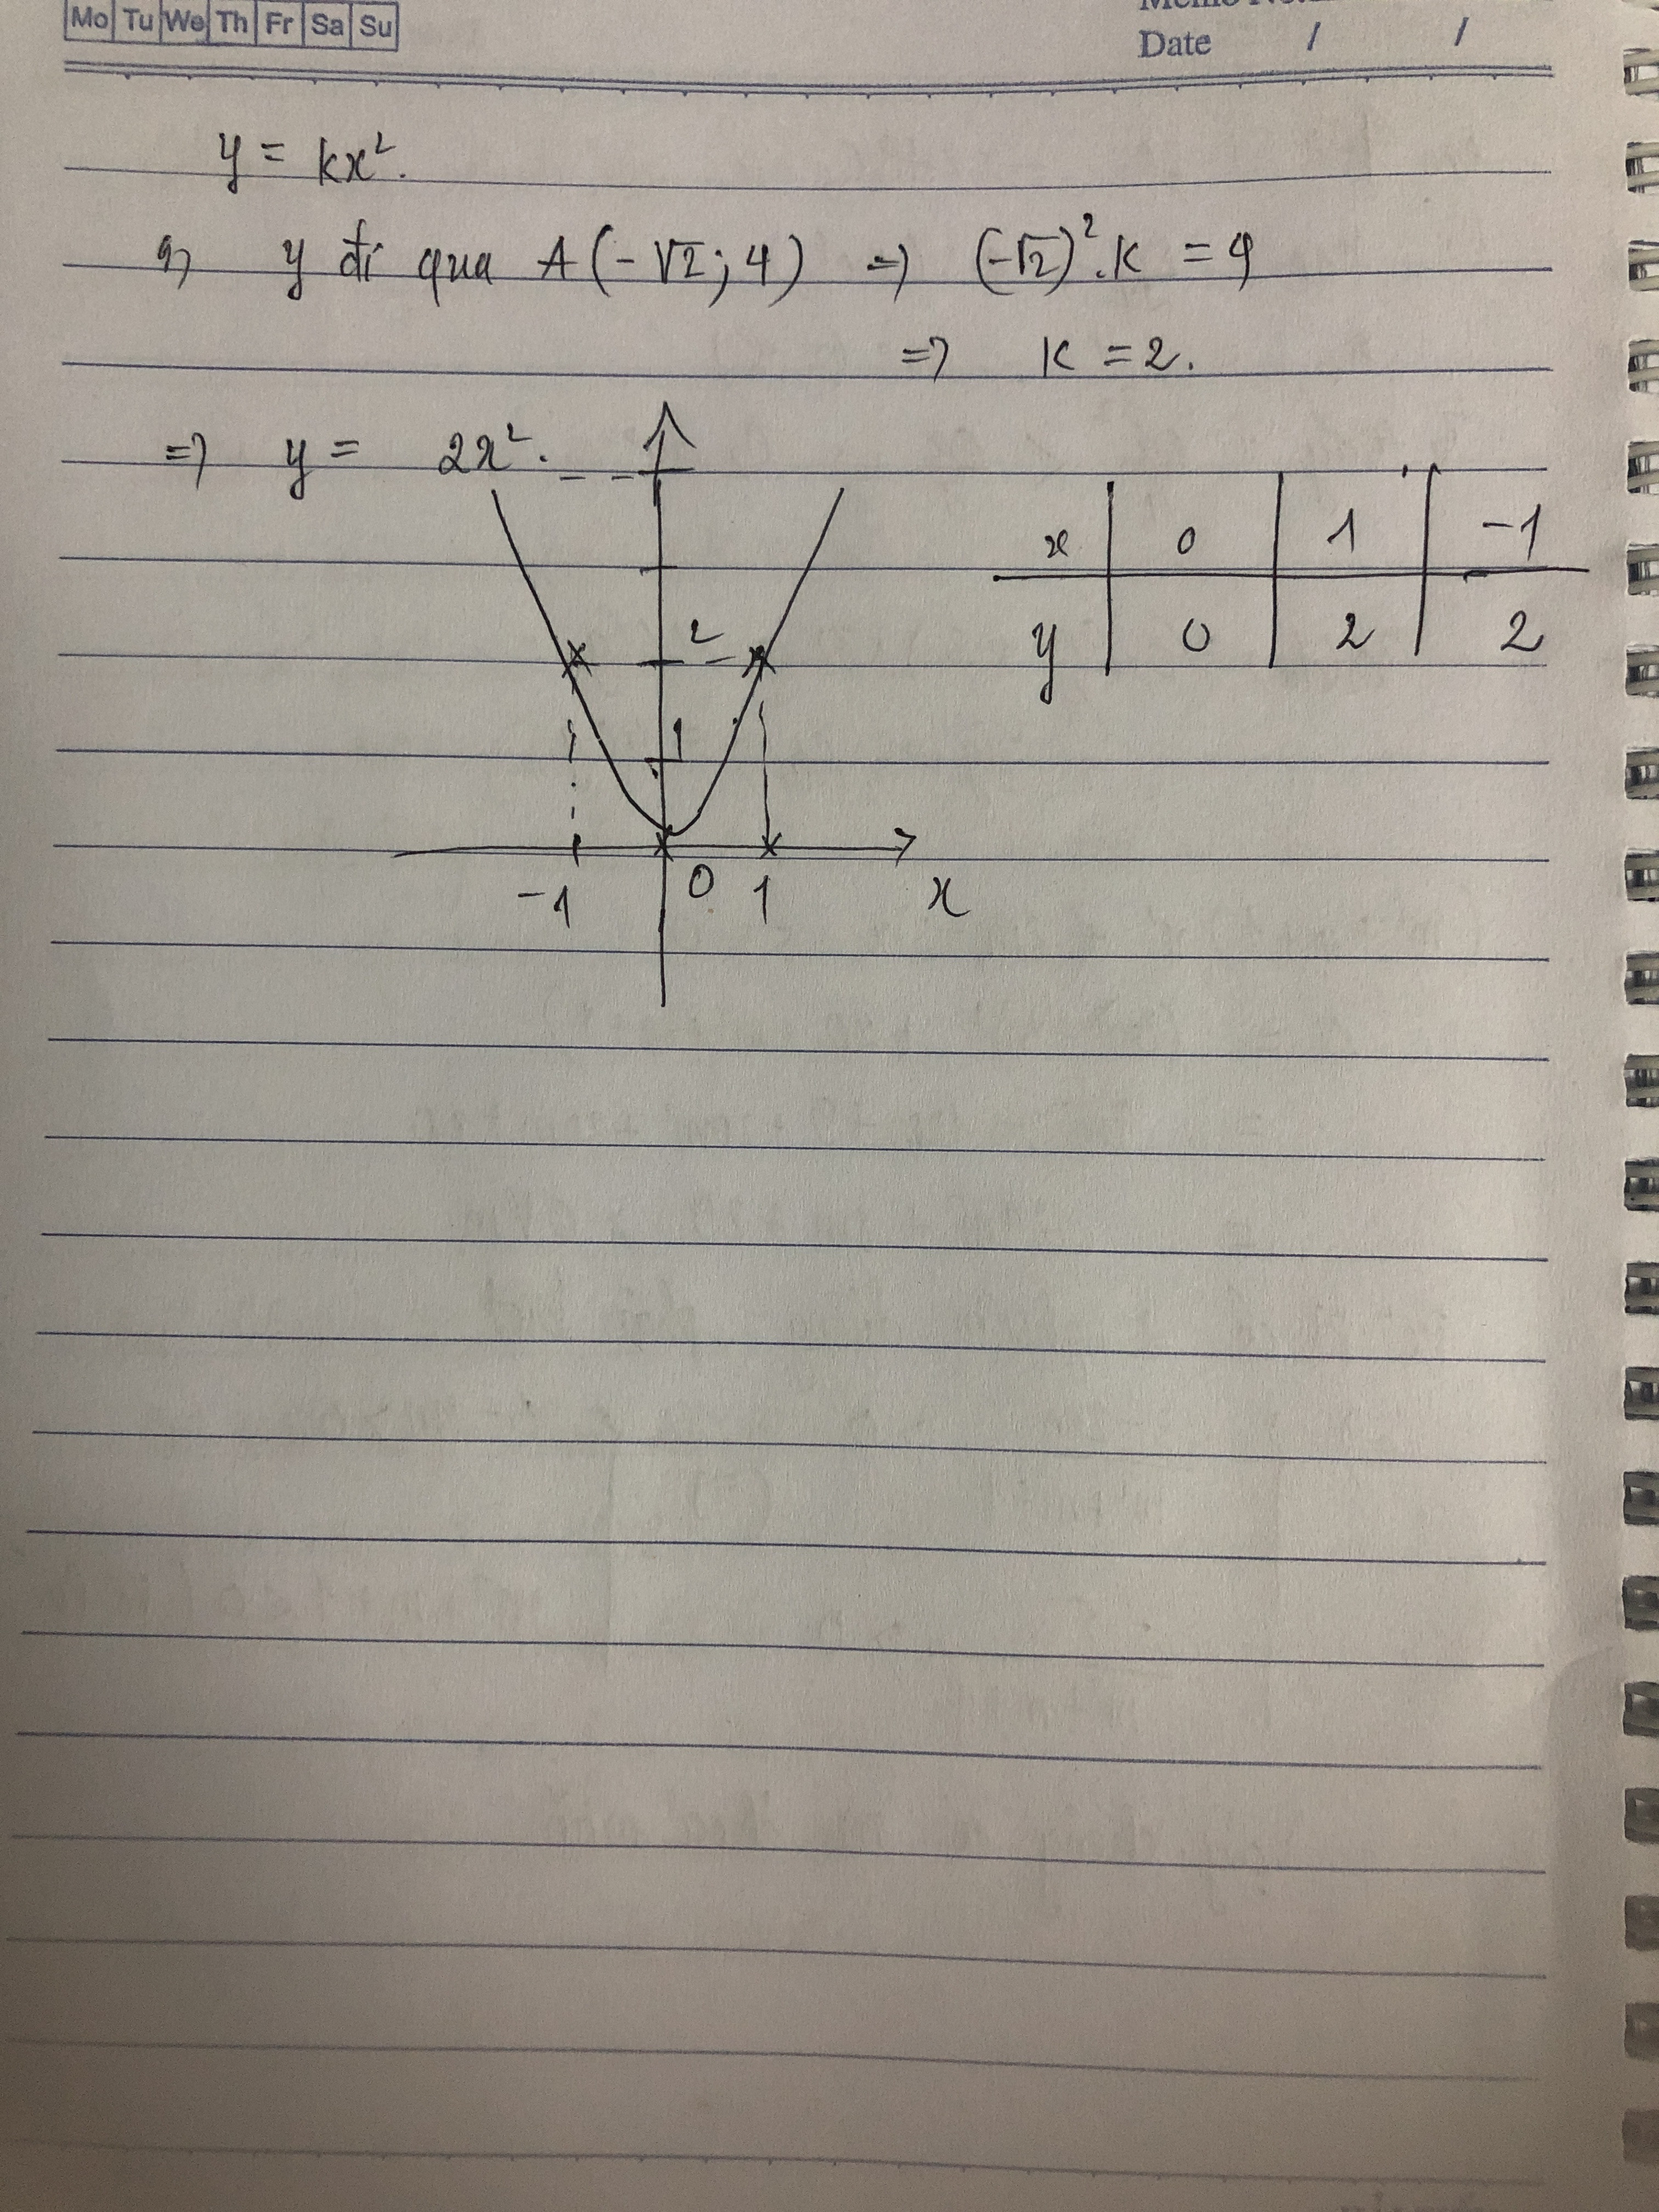 Mo Tu We Th Fr Sa Su
Memo No.
Date / /
y = kx².
a, y đi qua A(-√2; 4) => (-√2)².k = 4
=> k = 2.
=> y = 2x².
x 0 1 -1
y 0 2 2
2
1
-1 0 1 x